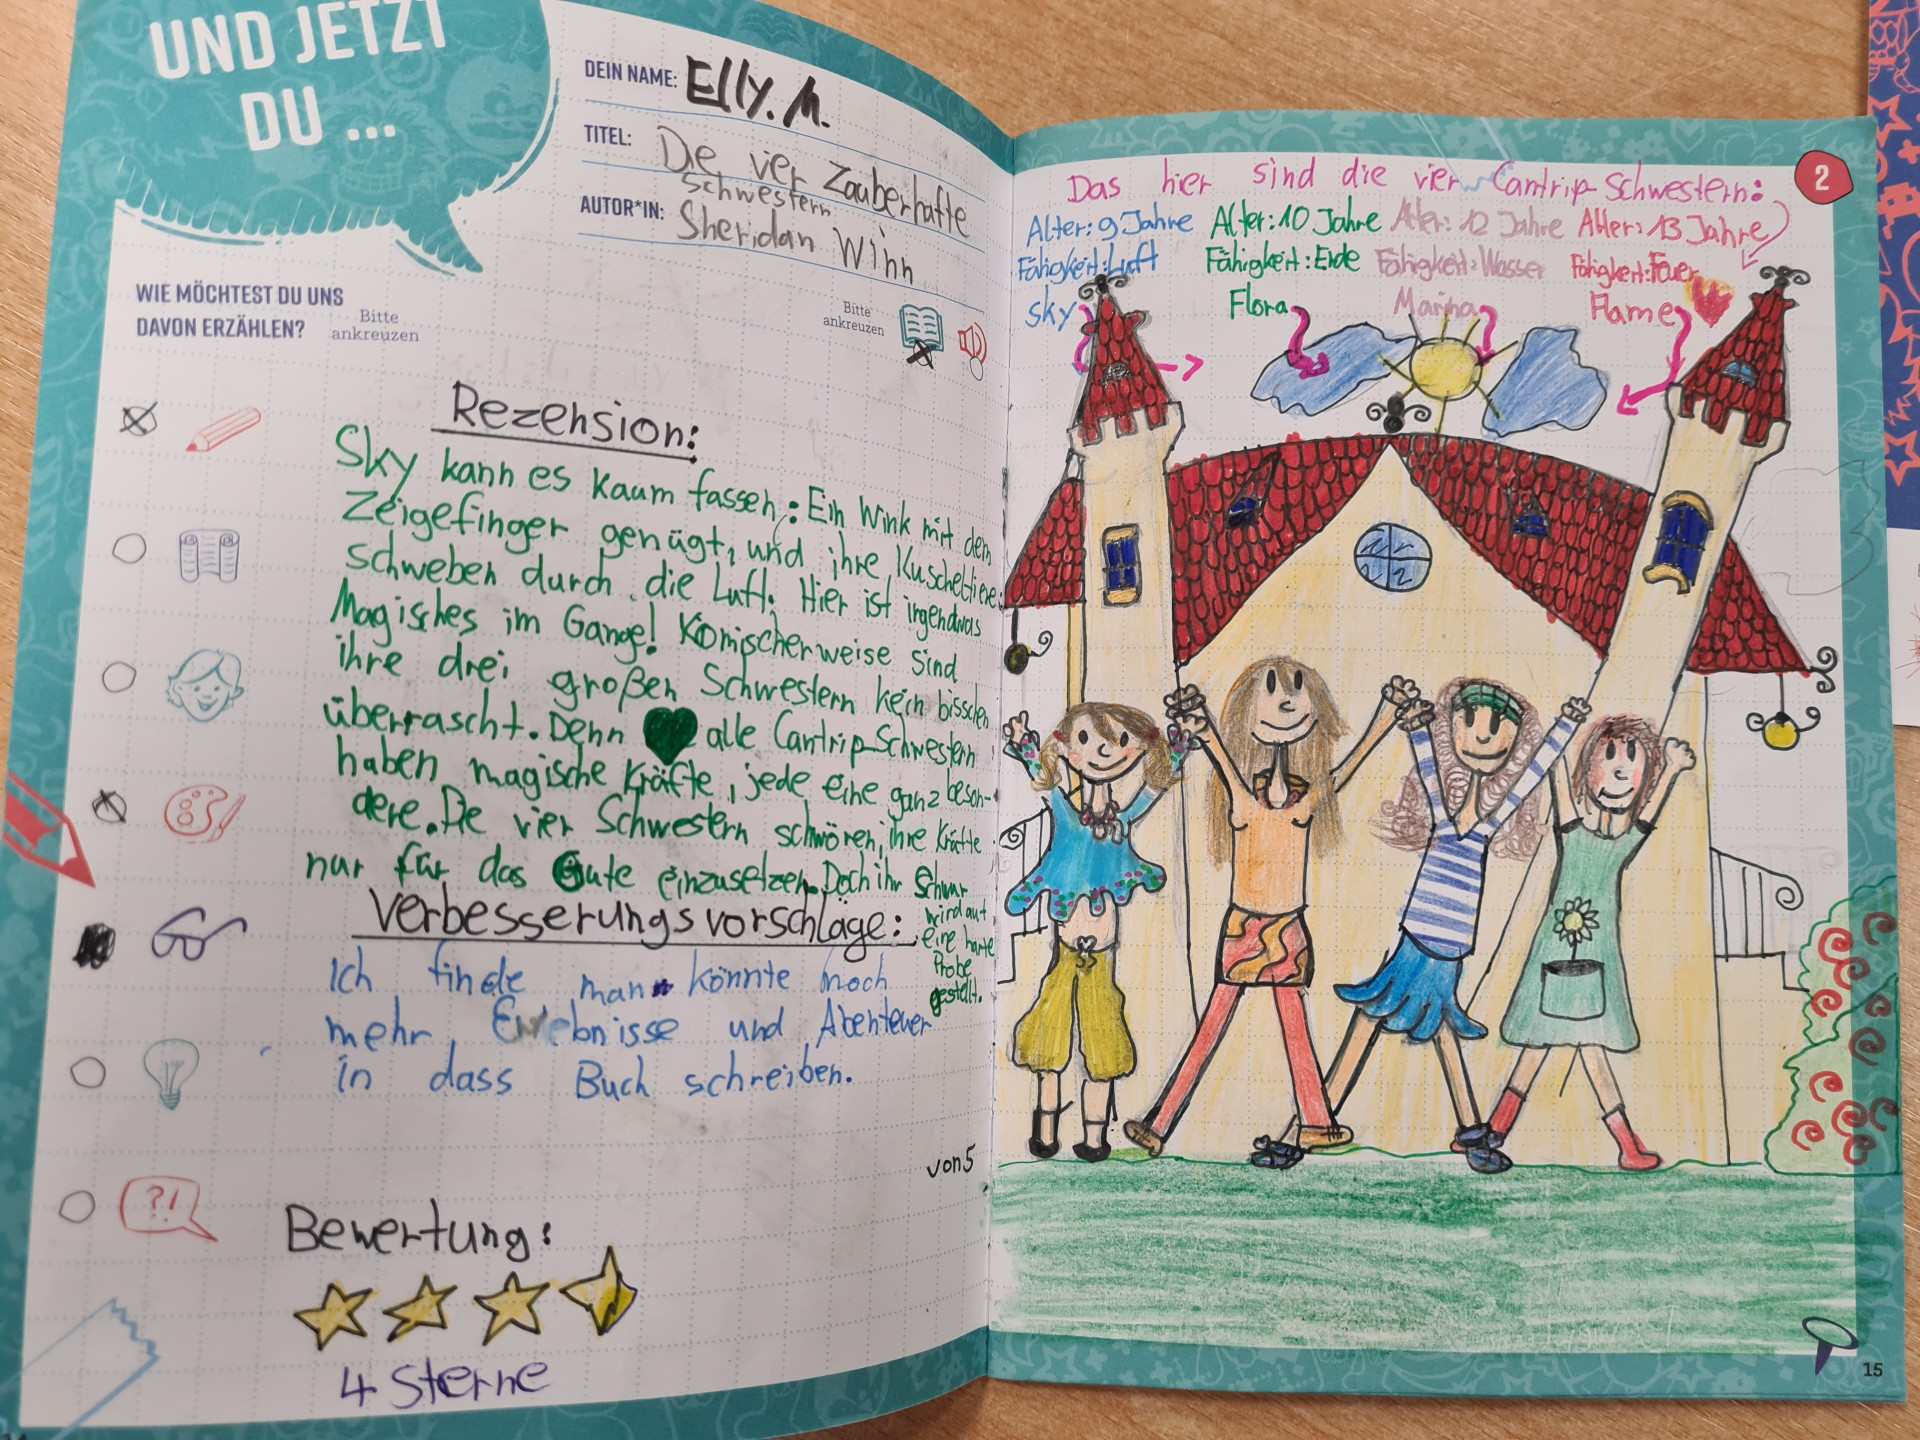 UND JETZT
DU ...
DEIN NAME: Elly. M.
TITEL: Die vier Zauberhafte
Schwestern
AUTOR*IN: Sheridan Winn
WIE MÖCHTEST DU UNS
DAVON ERZÄHLEN?
Bitte
ankreuzen
Bitte
ankreuzen
Rezension:
Sky kann es kaum fassen: Ein Wink mit dem
Zeigefinger genügt, und ihre Kuscheltiere
schweben durch die Luft. Hier ist irgendwas
Magisches im Gange! Komischerweise sind
ihre drei großen Schwestern kein bisschen
überrascht. Denn alle Cantrip-Schwestern
haben magische Kräfte, jede eine ganz beson-
dere. Die vier Schwestern schwören, ihre Kräfte
nur für das Gute einzusetzen. Doch ihr Schwur
wird auf
eine harte
Probe
gestellt.
Verbesserungsvorschläge:
Ich finde man könnte noch
mehr Erlebnisse und Abenteuer
in dass Buch schreiben.
von 5
Bewertung:
4 Sterne
?!
2
Das hier sind die vier Cantrip-Schwestern:
Alter: 9 Jahre Alter: 10 Jahre Alter: 12 Jahre Alter: 13 Jahre
Fähigkeit: Luft Fähigkeit: Erde Fähigkeit: Wasser Fähigkeit: Feuer
Sky Flora Marina Flame
15